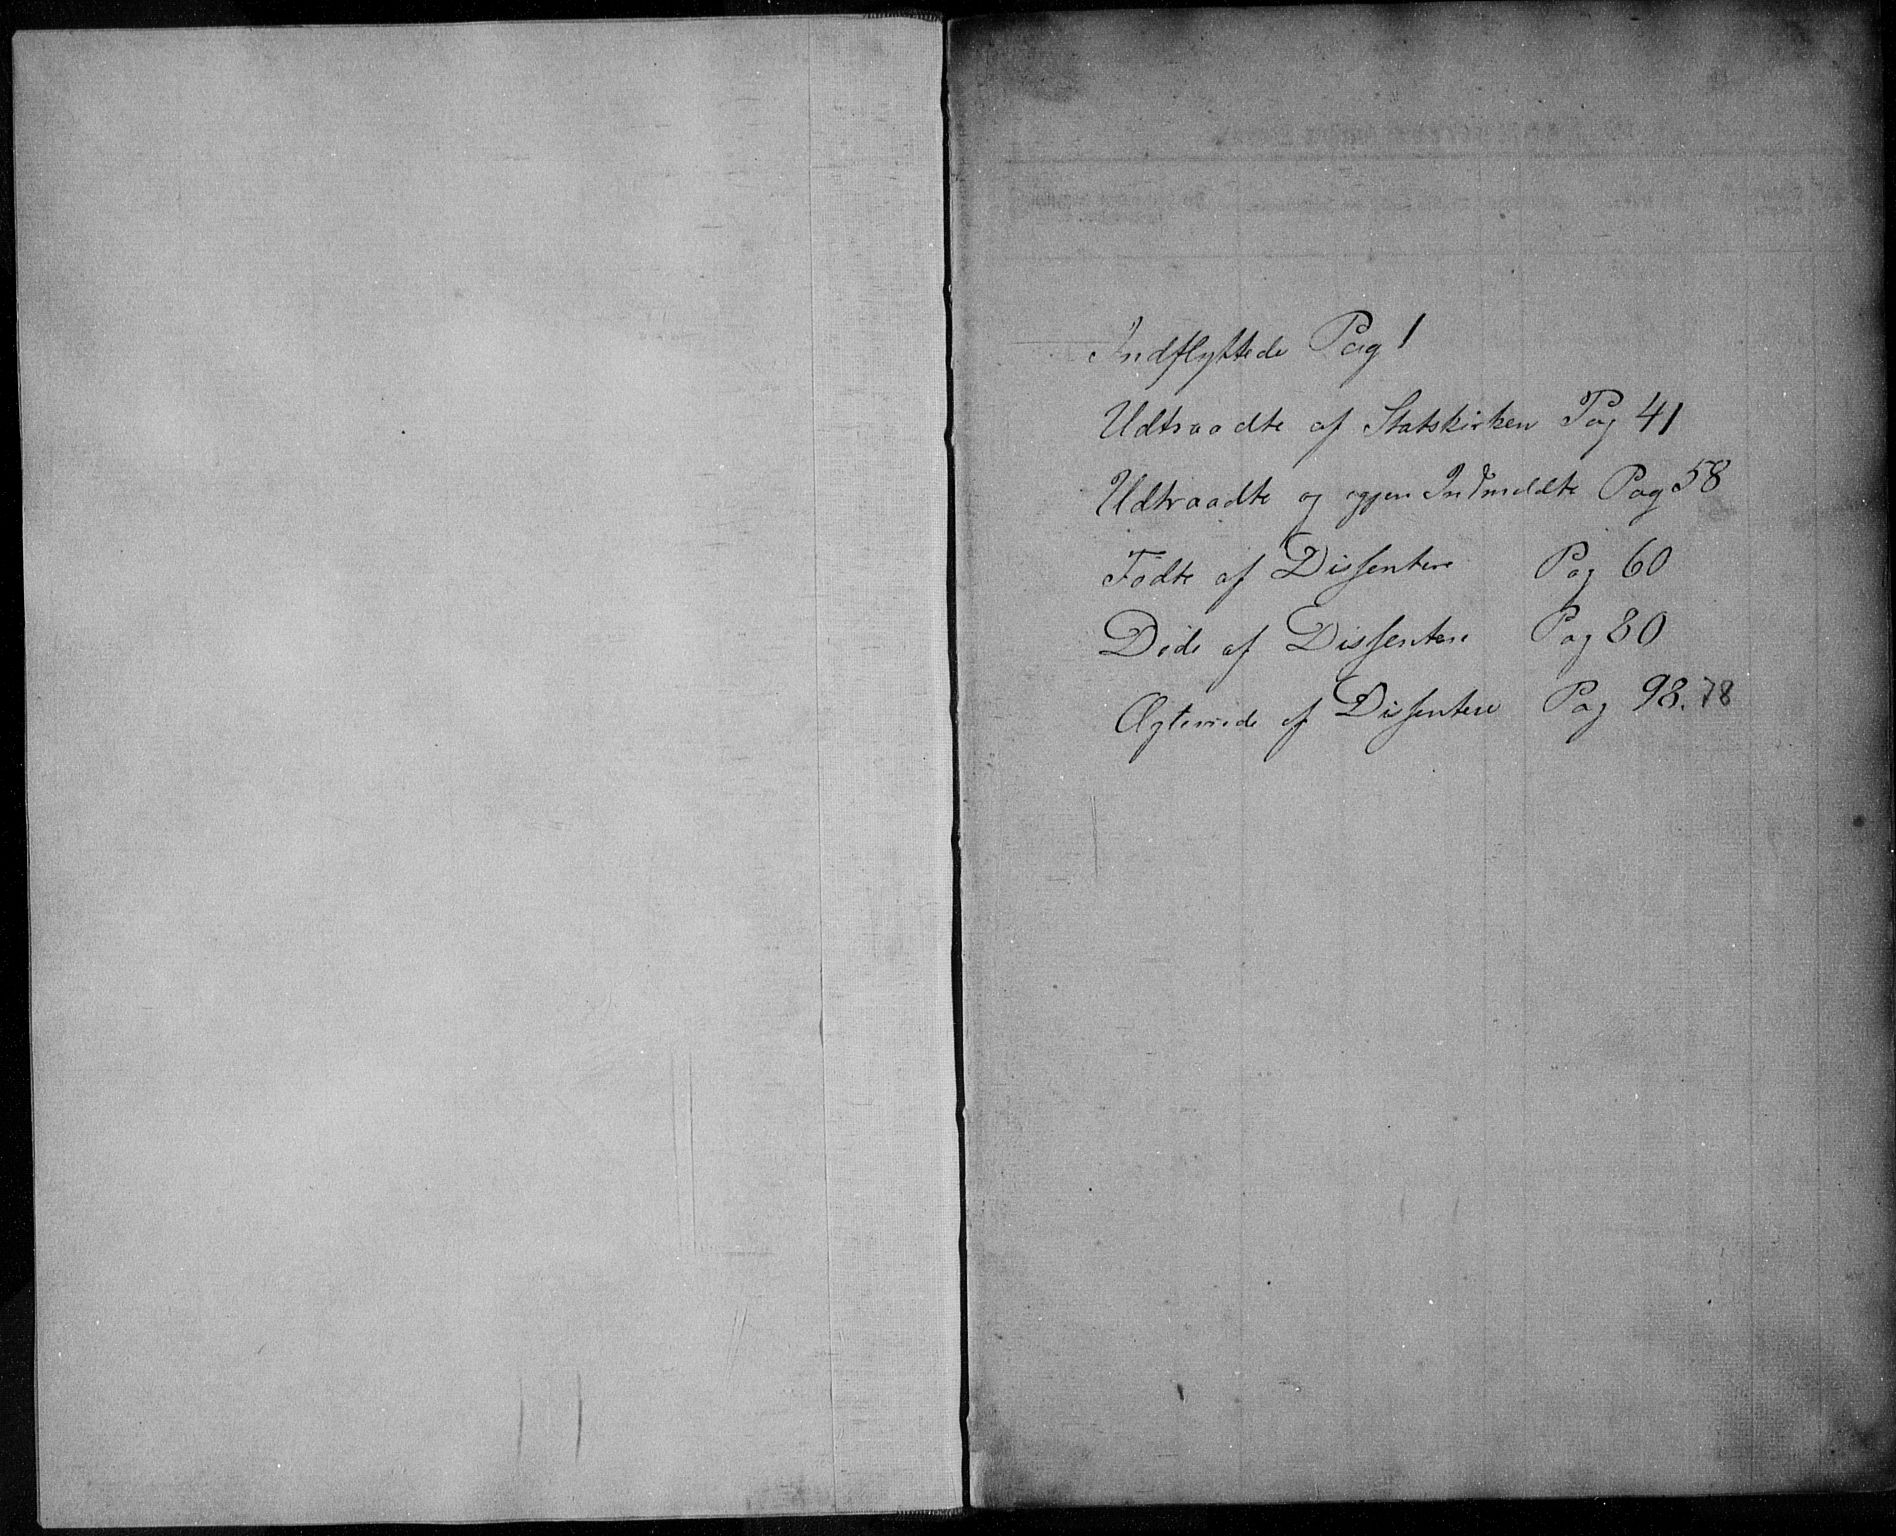 Indflyttede Pag 1
Udtraadte af Statskirken Pag 41
Udtraadte og igjen Indmeldte Pag 58
Fødte af Dissentere Pag 60
Døde af Dissentere Pag 80
Ægteviede af Dissentere Pag 98. 78